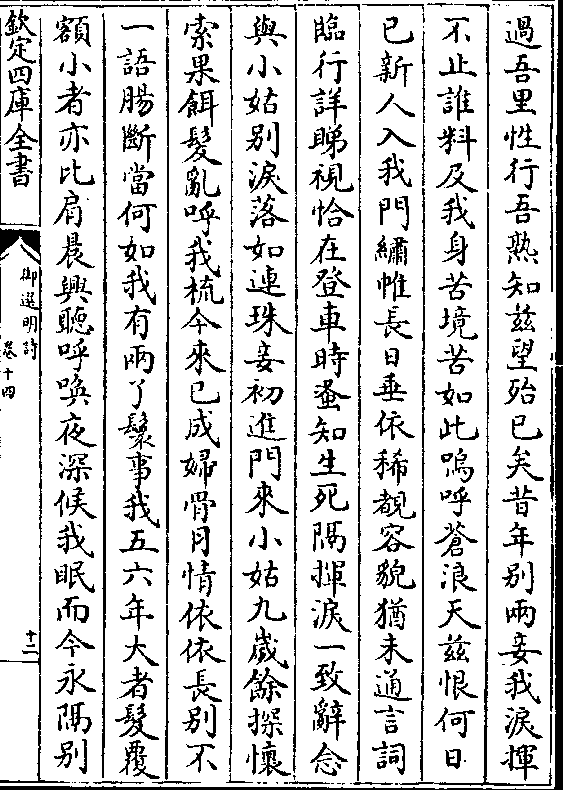 過吾里性行吾熟知兹望殆已矣昔年别兩妾我淚揮
不止誰料及我身苦境苦如此嗚呼蒼浪天兹恨何日
已新人入我門繡帷長日垂依稀覩容貌猶未通言詞
臨行詳睇視恰在登車時蚤知生死隔揮淚一致辭念
與小姑别淚落如連珠妾初進門來小姑九歲餘探懷
索果餌髮亂呼我梳今來已成婦骨月情依依長别不
一語腸斷當何如我有兩丫鬟事我五六年大者髮覆
額小者亦比肩晨興聽呼喚夜深候我眠而今永隔别
欽定四庫全書
御選明詩
卷十四
十二